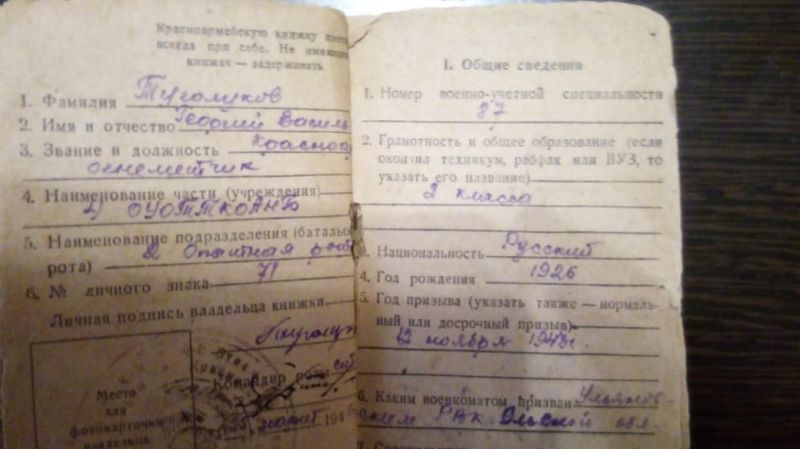 Красноармейскую книжку
всегда при себе. Не
книжек — задерживать
1. Фамилия Туголуков
2. Имя и отчество Георгий Василь
3. Звание и должность Красноар
огнеметчик
4. Наименование части (учреждения)
5. Наименование подразделения (батальо
рота) 2 Опытная рота
6. № личного знака 71
Личная подпись владельца книжки
Командир роты
194
Место
для
фотокарточки
владельца
I. Общие сведения
1. Номер военно-учетной специальности
87
2. Грамотность и общее образование (если
окончил техникум, рабфак или ВУЗ, то
указать его название)
класса
3. Национальность Русский
4. Год рождения 1926
5. Год призыва (указать также — нормаль-
ный или досрочный призыв)
12 ноября 1943г.
6. Каким военкоматом призван Ульянов-
ским РВК обл.